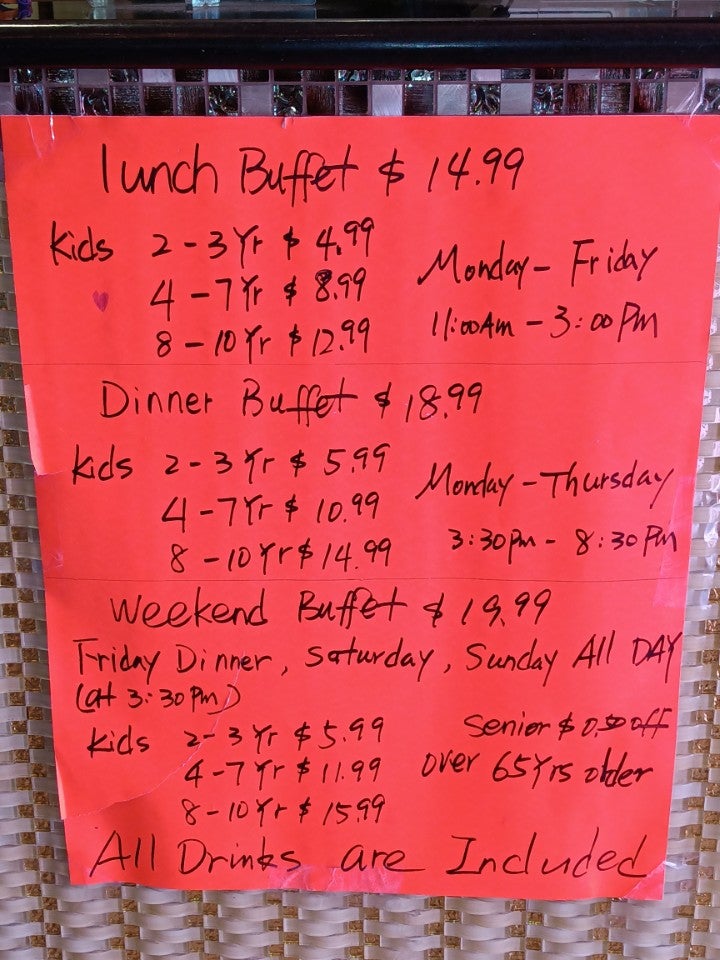 lunch Buffet $ 14.99
Kids 2-3 Yr $ 4.99
4-7 Yr $ 8.99
8-10 Yr $ 12.99
Monday - Friday
11:00 AM - 3:00 PM
Dinner Buffet $ 18.99
Kids 2-3 Yr $ 5.99
4-7 Yr $ 10.99
8-10 Yr $ 14.99
Monday - Thursday
3:30 PM - 8:30 PM
Weekend Buffet $ 19.99
Friday Dinner, Saturday, Sunday All DAY
(at 3:30 PM)
Kids 2-3 Yr $ 5.99
4-7 Yr $ 11.99
8-10 Yr $ 15.99
Senior $ 0.50 off
over 65 Yrs older
All Drinks are Included